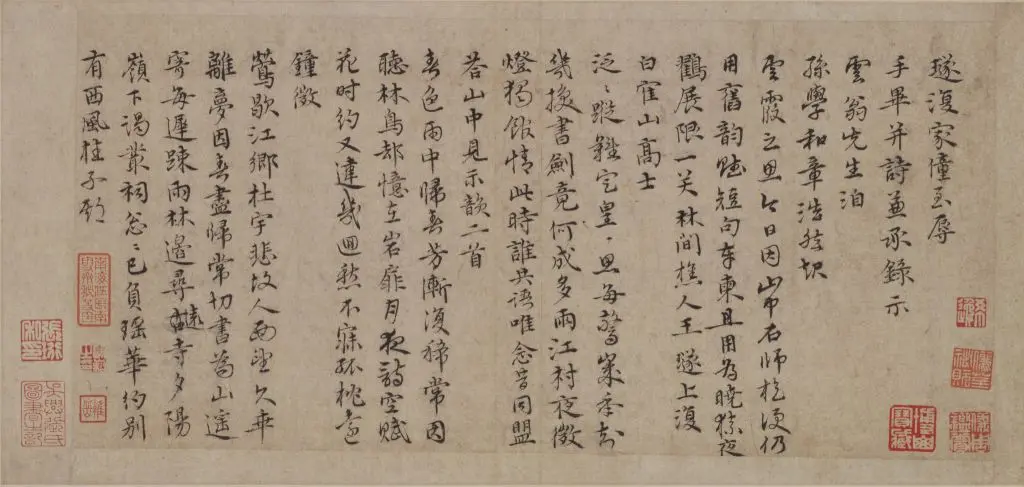 遂復家憧至辱
手畢并詩並承錄示
雲翁先生洎
孫學和章浩然
雲霞之思今日因山中右師便仍
用舊韵賦短句奉柬且用為曉猿夜
鶴展限一笑林間樵人王遂上復
白雀山高士
泛泛蹤難定皇皇思每驚歲年
幾換書劍竟何成多雨江村夜微
燈獨館情此時誰共語唯念昔同盟
答山中見示韻二首
春色雨中歸春芳漸復稀常因
聽林鳥却憶在岩扉月夜詩空賦
花時約又違幾迴愁不寐孤枕遠
鐘微
鶯歇江鄉杜宇悲故人西望久乖
離夢因春盡歸常切書為山遙
寄每遲疎雨林邊尋遠寺夕陽
嶺下謁叢祠怱怱已負瑤華約別
有西風桂子